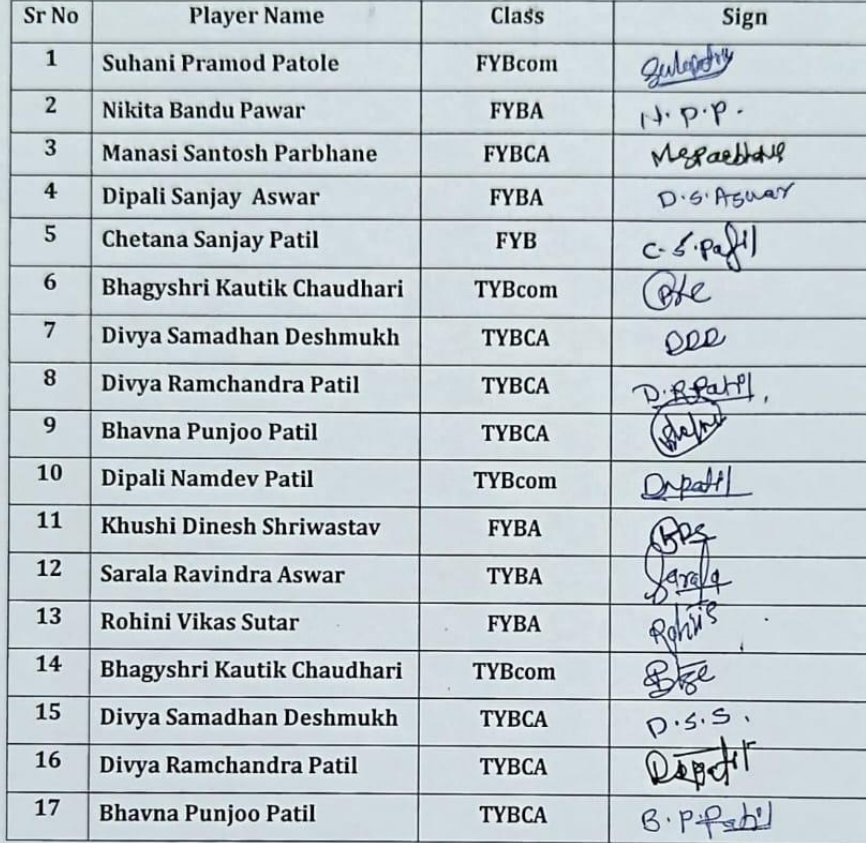 Sr No Player Name Class Sign
1 Suhani Pramod Patole FYBcom
2 Nikita Bandu Pawar FYBA N.P.P.
3 Manasi Santosh Parbhane FYBCA
4 Dipali Sanjay Aswar FYBA D.S.Aswar
5 Chetana Sanjay Patil FYB C.S.Patil
6 Bhagyshri Kautik Chaudhari TYBcom
7 Divya Samadhan Deshmukh TYBCA
8 Divya Ramchandra Patil TYBCA D.R.Patil.
9 Bhavna Punjoo Patil TYBCA
10 Dipali Namdev Patil TYBcom
11 Khushi Dinesh Shriwastav FYBA
12 Sarala Ravindra Aswar TYBA Sarala
13 Rohini Vikas Sutar FYBA
14 Bhagyshri Kautik Chaudhari TYBcom
15 Divya Samadhan Deshmukh TYBCA D.S.S.
16 Divya Ramchandra Patil TYBCA
17 Bhavna Punjoo Patil TYBCA B.P.Patil